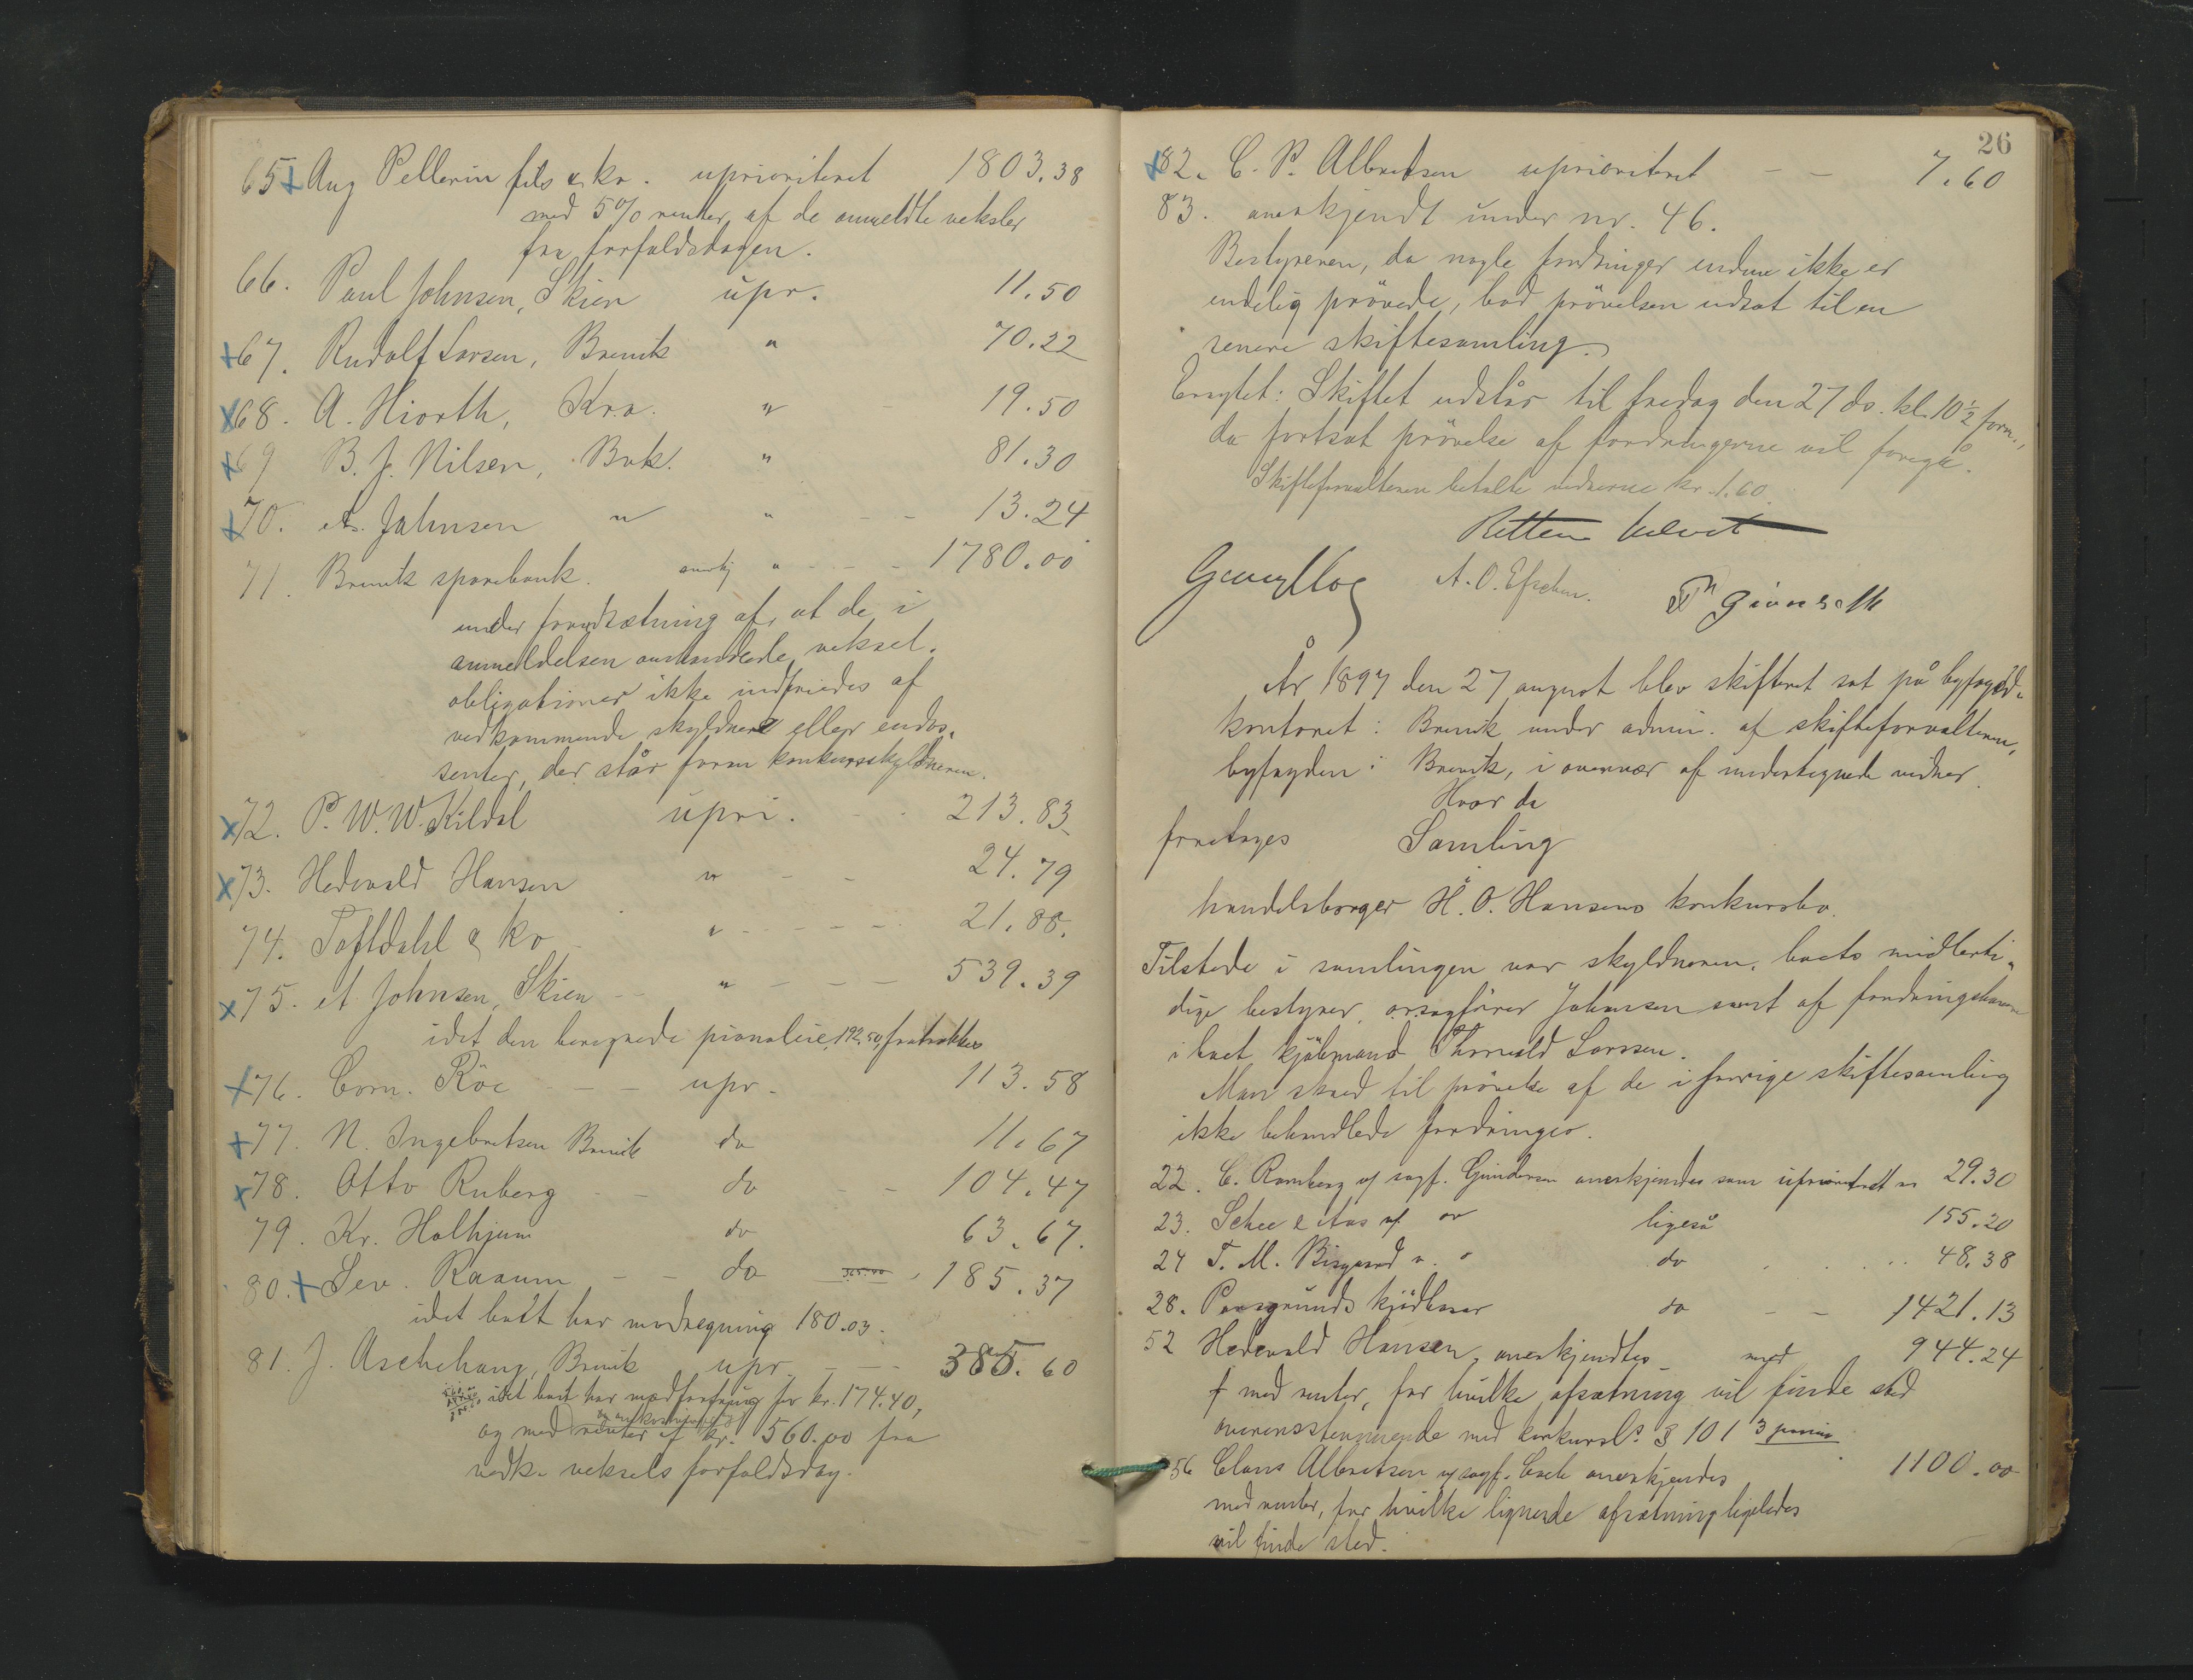 65 + Aug Pellerin fils & ko. uprioriteret 1803.38
med 5% renter af de anmeldte veksler
fra forfaldsdagen.
66. Paul Johnsen, Skien upr. 11.50
+67. Rudolf Larsen, Brevik " 70.22
x68. A. Hiorth, Kra. " 19.50
x69 B. J. Nilsen, Bvk. " 81.30
+70. A. Johnsen " " - - 13.24
71. Brevik sparebank. anerkj " - - - 1780.00
under forudsætning af, at de i
anmeldelsen omhandlede veksel-
obligationer ikke indfriedes af
vedkommende skyldnere eller endos-
senter, der står foran konkursskyldneren.
x72. P. W. W. Kildal upri. - - 213.83
x73. Hedevald Hansen " - - 24.79
74. Toftdahl & ko " - - - - - 21.88.
x75. A Johnsen, Skien - - " - - - 539.39
idet den beregnede pianoleie, 192.50, fratrækkes
+76. Corn. Röe - - - upr. 113.58
+77. N. Ingebretsen Brevik do 11.67
x78. Otto Ruberg - - do - - 104.47
79. Kr. Holhjem do 63.67.
80. + Sev. Raaum - - do 365.40 185.37
idet boet har modregning 180.03.
81. J. Aschehoug, Brevik upr. - - - 385.60
idet boet har modfordring for kr. 174.40,
og med renter af kr. 560.00 fra
vedk. veksels forfaldsdag.
26
+82. C. P. Albretsen uprioriteret - - 7.60
83. anerkjendt under nr. 46.
Bestyreren, da nogle fordringer endnu ikke er
endelig prövede, bad prövelsen udsat til en
senere skiftesamling.
Besluttet: Skiftet udstår til fredag den 27 ds. kl. 10 1/2 form.,
da fortsat prövelse af fordringerne vil foregå.
Skifteforvalteren betalte vidnerne kr. 1.60
Retten hævet
A. O. Eschen.
År 1897 den 27 august blev skifteret sat på byfogd-
kontoret i Brevik under admin. af skifteforvalteren,
byfogden i Brevik, i overvær af undertegnede vidner.
Hvor da
foretoges Samling
i
handelsborger H. O. Hansens konkursbo.
Tilstede i samlingen var skyldneren, boets midlerti-
dige bestyrer, orsagförer Johansen samt af fordringshavere
i boet kjöbmand Thorvald Larssen.
Man skred til prövelse af de i forrige skiftesamling
ikke behandlede fordringer.
22. C. Romberg v/ sagf. Gundersen anerkjendes som uprioriteret m 29.30
23. Schee & Aas v/ do ligeså 155.20
24 T. M. Bisgaard " " do 48.38
28. Porsgrunds kjödbasar do - - 1421.13
52 Hedevald Hansen, anerkjendtes - med 944.24
med renter, for hvilke afsætning vil finde sted
overensstemmende med konkursl. § 101
56 Claus Albretsen v/ sagf. anerkjendes 1100.00
med renter, for hvilke lignende afsætning ligeledes
vil finde sted.